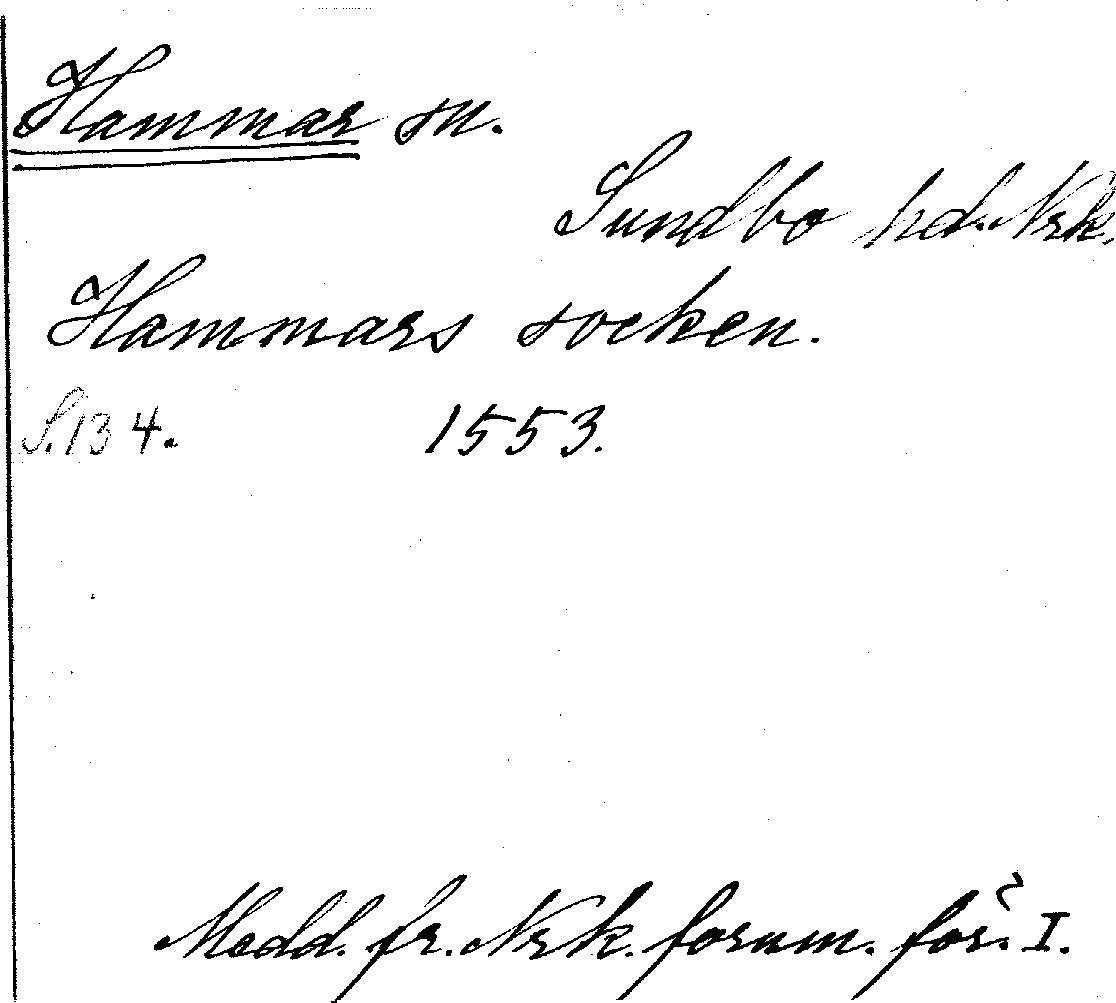 Hammar sn.
Sundbo hd. Nrk.
Hammars socken.
S. 134. 1553.
Medd. fr. Nrk. fornm. för. I.